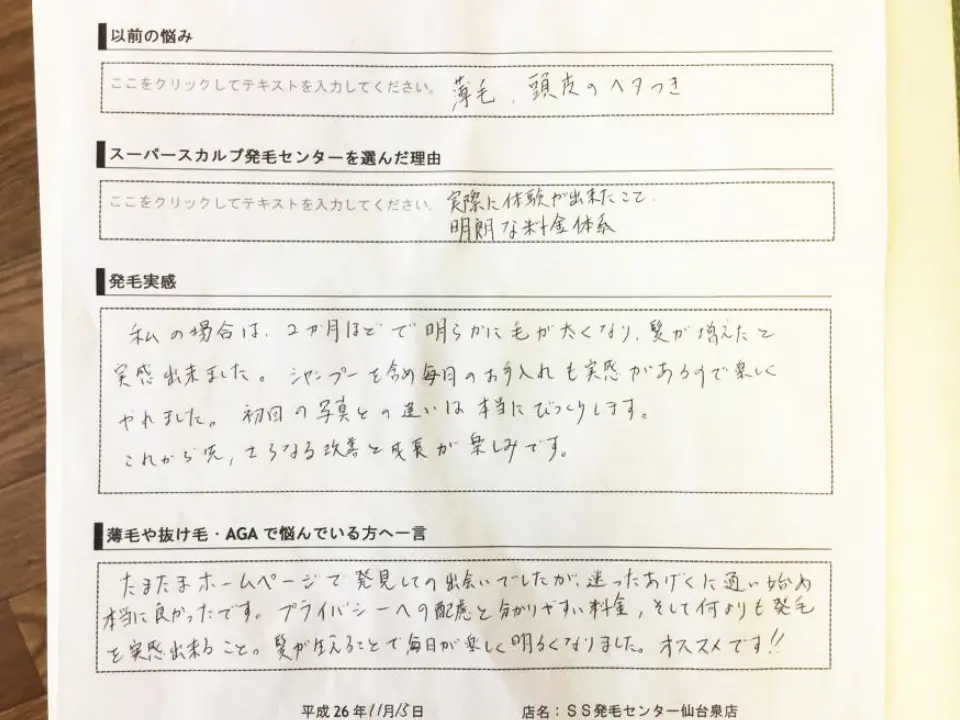 以前の悩み
ここをクリックしてテキストを入力してください。 薄毛、頭皮のベタつき
スーパースカルプ発毛センターを選んだ理由
ここをクリックしてテキストを入力してください。 実際に体験が出来たこと.
明朗な料金体系
発毛実感
私の場合は、2か月ほどで明らかに毛が太くなり、髪が増えたと
実感出来ました。シャンプーを含め毎日のお手入れも実感があるので楽しく
やれました。初回の写真との違いは本当にびっくりします。
これから先,さらなる改善と成長が楽しみです。
薄毛や抜け毛・AGAで悩んでいる方へ一言
たまたまホームページで発見しての出会いでしたが、迷ったあげくに通い始め
本当に良かったです。プライバシーへの配慮と分かりやすい料金,そして何よりも発毛
を実感出来ること。髪が生えることで毎日が楽しく明るくなりました。オススメです!!
平成26年11月15日 店名:SS発毛センター仙台泉店